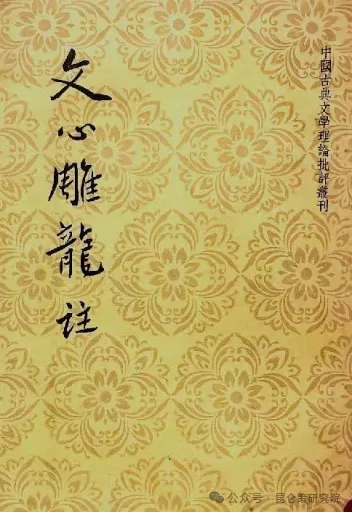 中國古典文學理論批評叢刊
文心雕龍註
公众号 · 昆仑策研究院